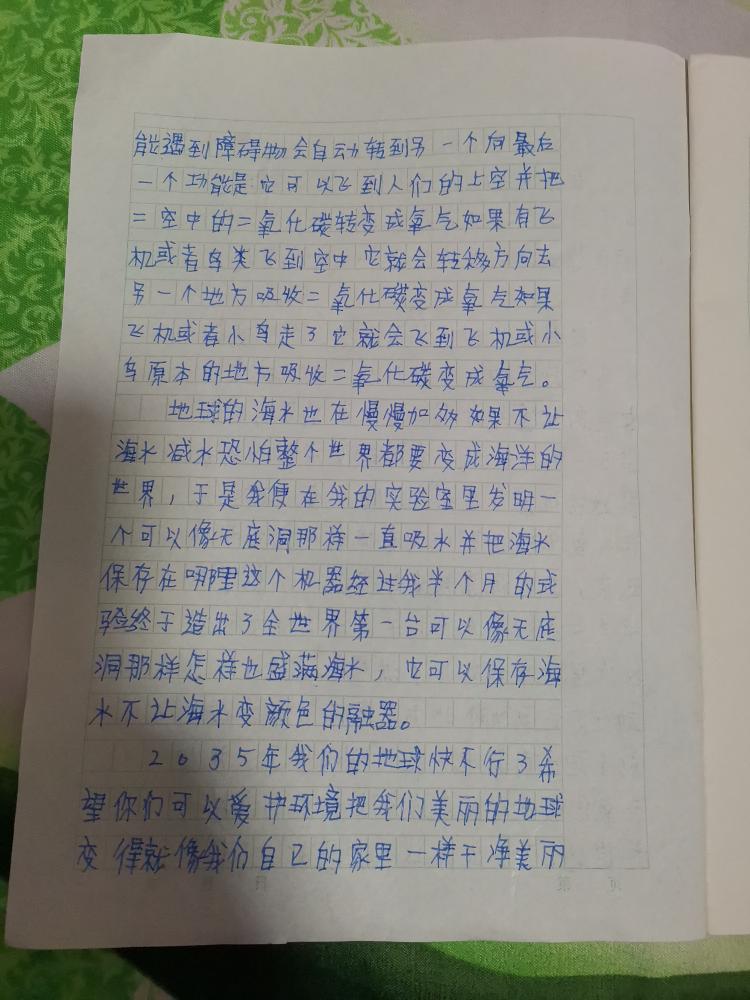 能遇到障碍物会自动转到另一个向最后
一个功能是它可以飞到人们的上空并把
二空中的二氧化碳转变成氧气如果有飞
机或者鸟类飞到空中它就会转移方向去
另一个地方吸收二氧化碳变成氧气如果
飞机或者小鸟走了它就会飞到飞机或小
鸟原本的地方吸收二氧化碳变成氧气。
地球的海水也在慢慢加多如果不让
海水减水恐怕整个世界都要变成海洋的
世界，于是我便在我的实验室里发明一
个可以像无底洞那样一直吸水并把海水
保存在哪里这个机器经过我半个月的试
验终于造出了全世界第一台可以像无底
洞那样怎样也盛满海水，它可以保存海
水不让海水变颜色的融器。
2035年我们的地球快不行了希
望你们可以爱护环境把我们美丽的地球
变得就像我们自己的家里一样干净美丽